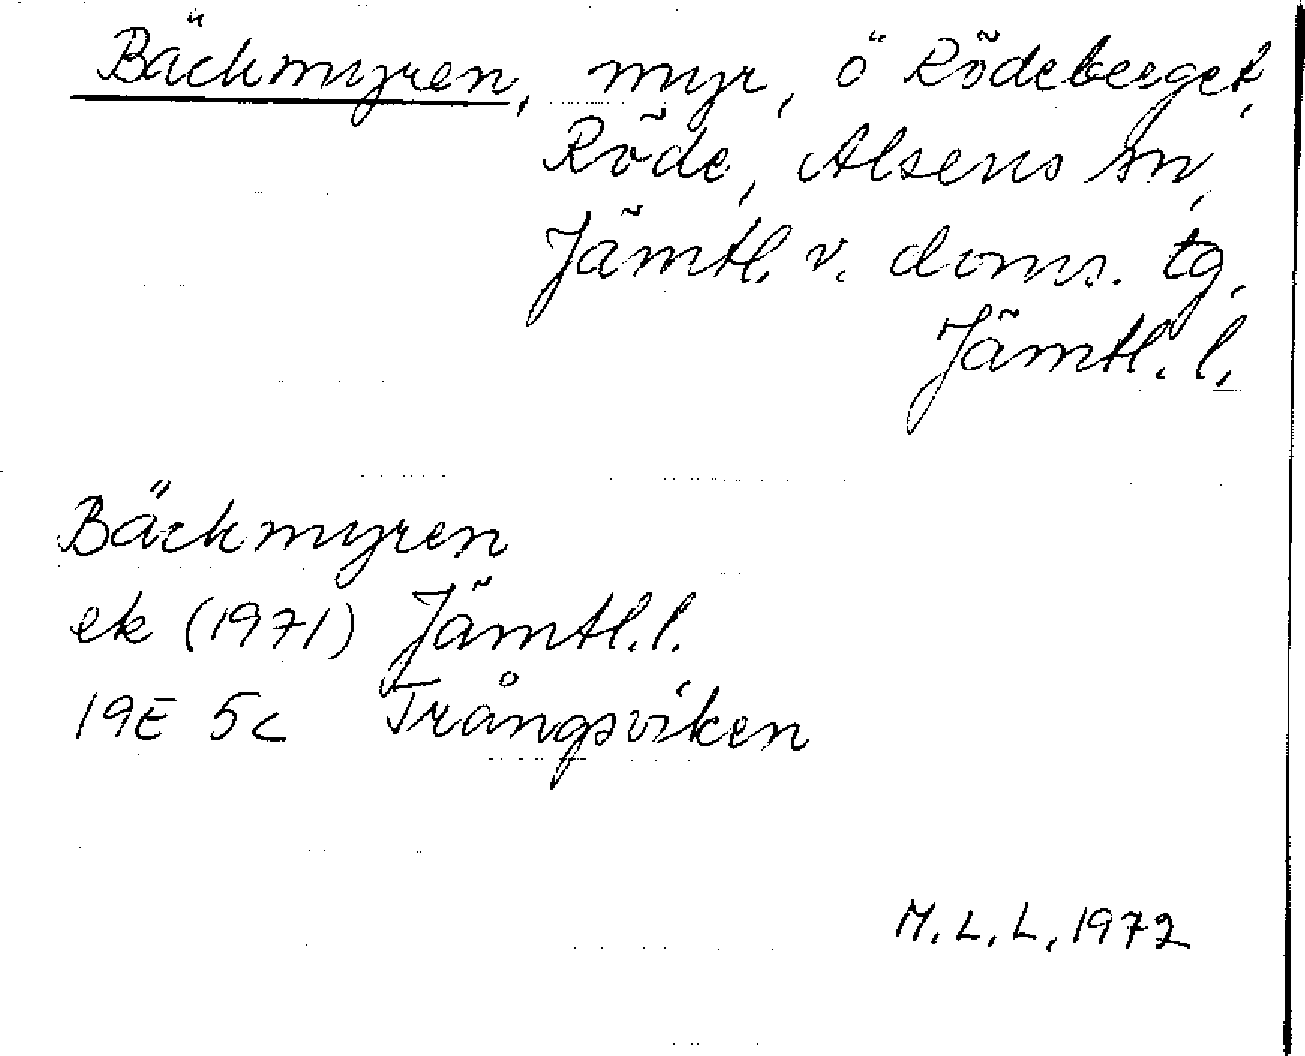 Bäckmyren, myr, ö Rödeberget,
Röde, Alsens sn,
Jämtl. v. doms. tg,
Jämtl. l.
Bäckmyren
ek (1971) Jämtl. l.
19E 5c Trångsviken
M. L. L. 1972